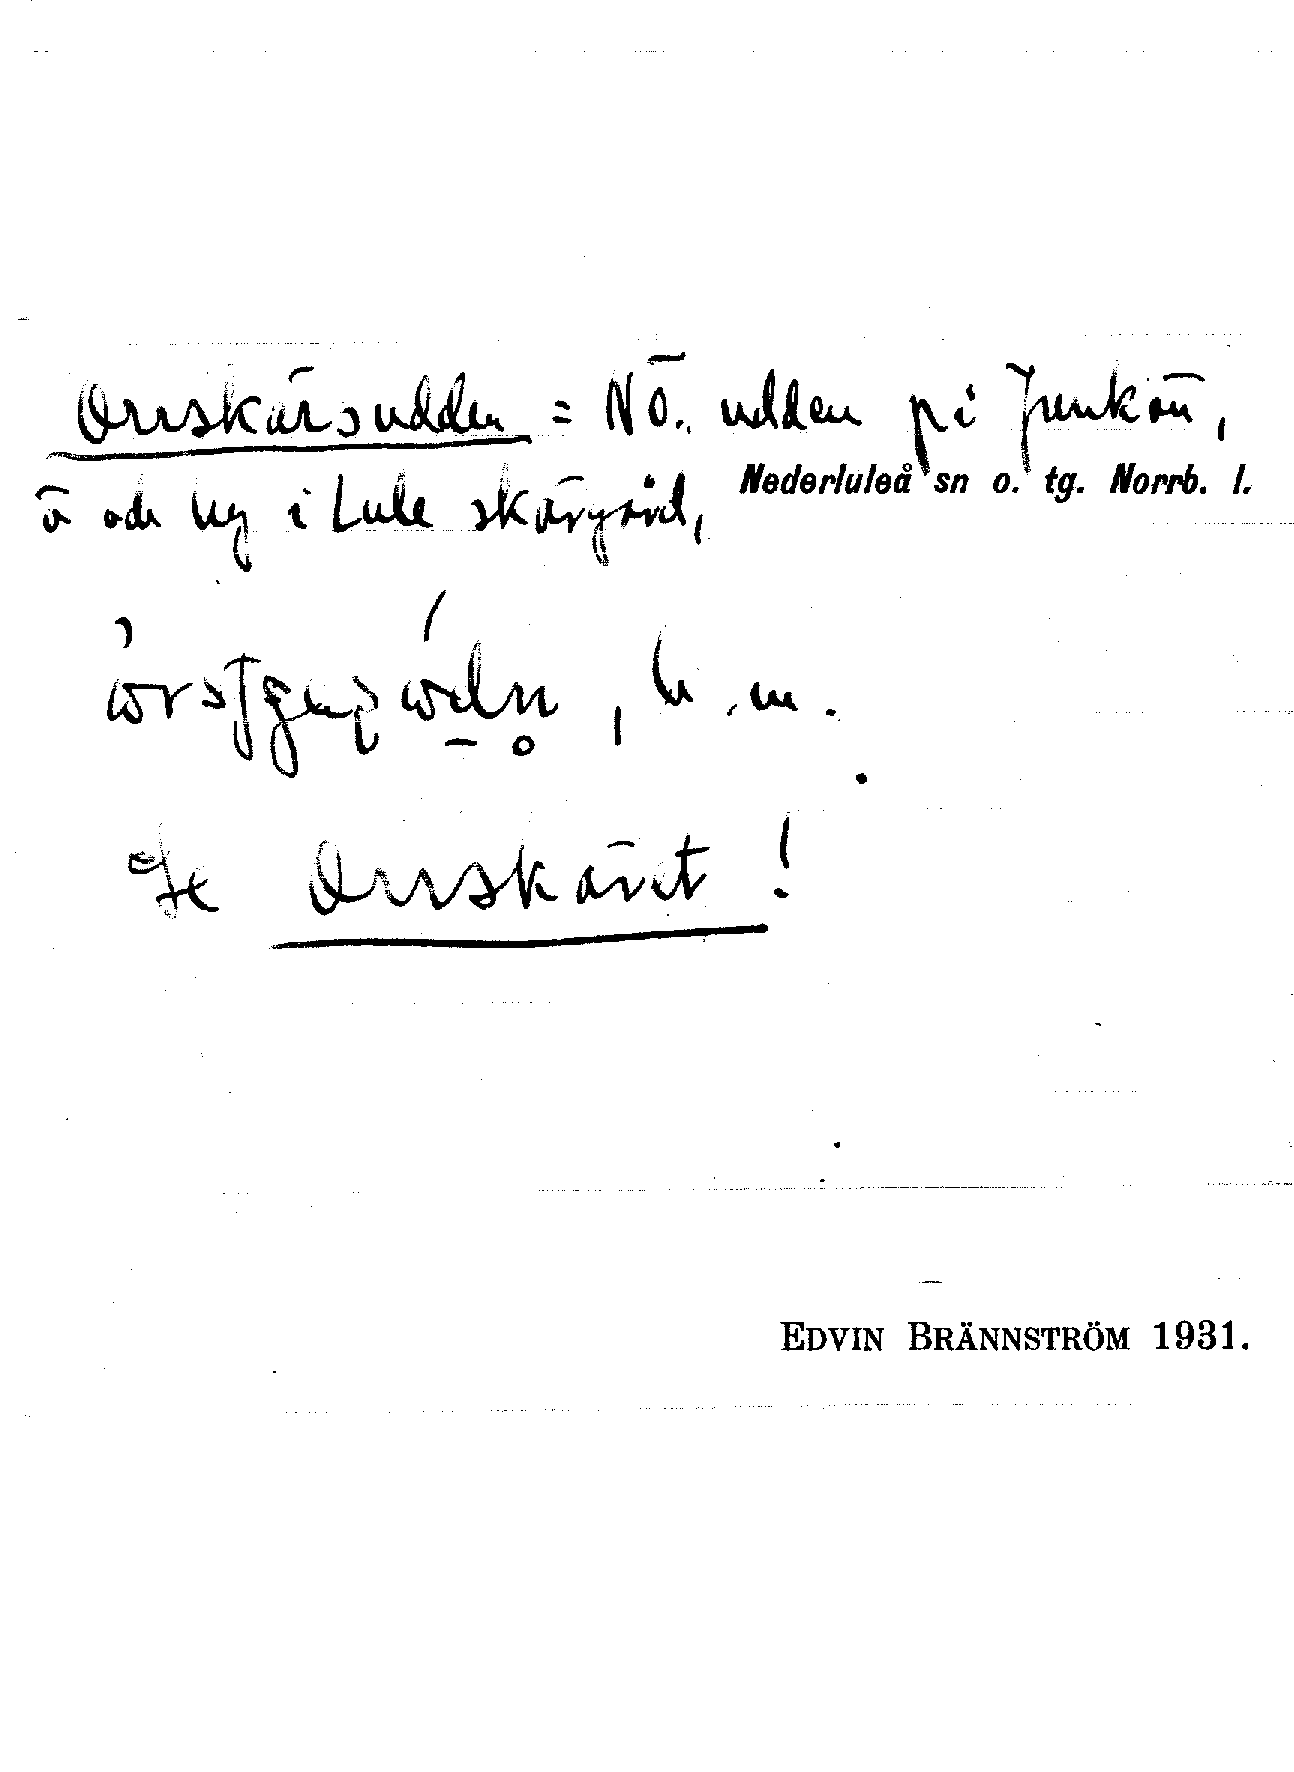 Orrskärsudden = NÖ. udden på Junkön,
ö och by i Lule skärgård, Nederluleå sn o. tg. Norrb. l.
, b. m.
Se Orrskäret!
EDVIN BRÄNNSTRÖM 1931.